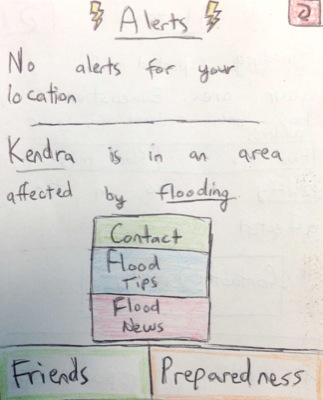 Alerts
2
No alerts for your
location
Kendra is in an area
affected by flooding
Contact
Flood
Tips
Flood
News
Friends
Preparedness